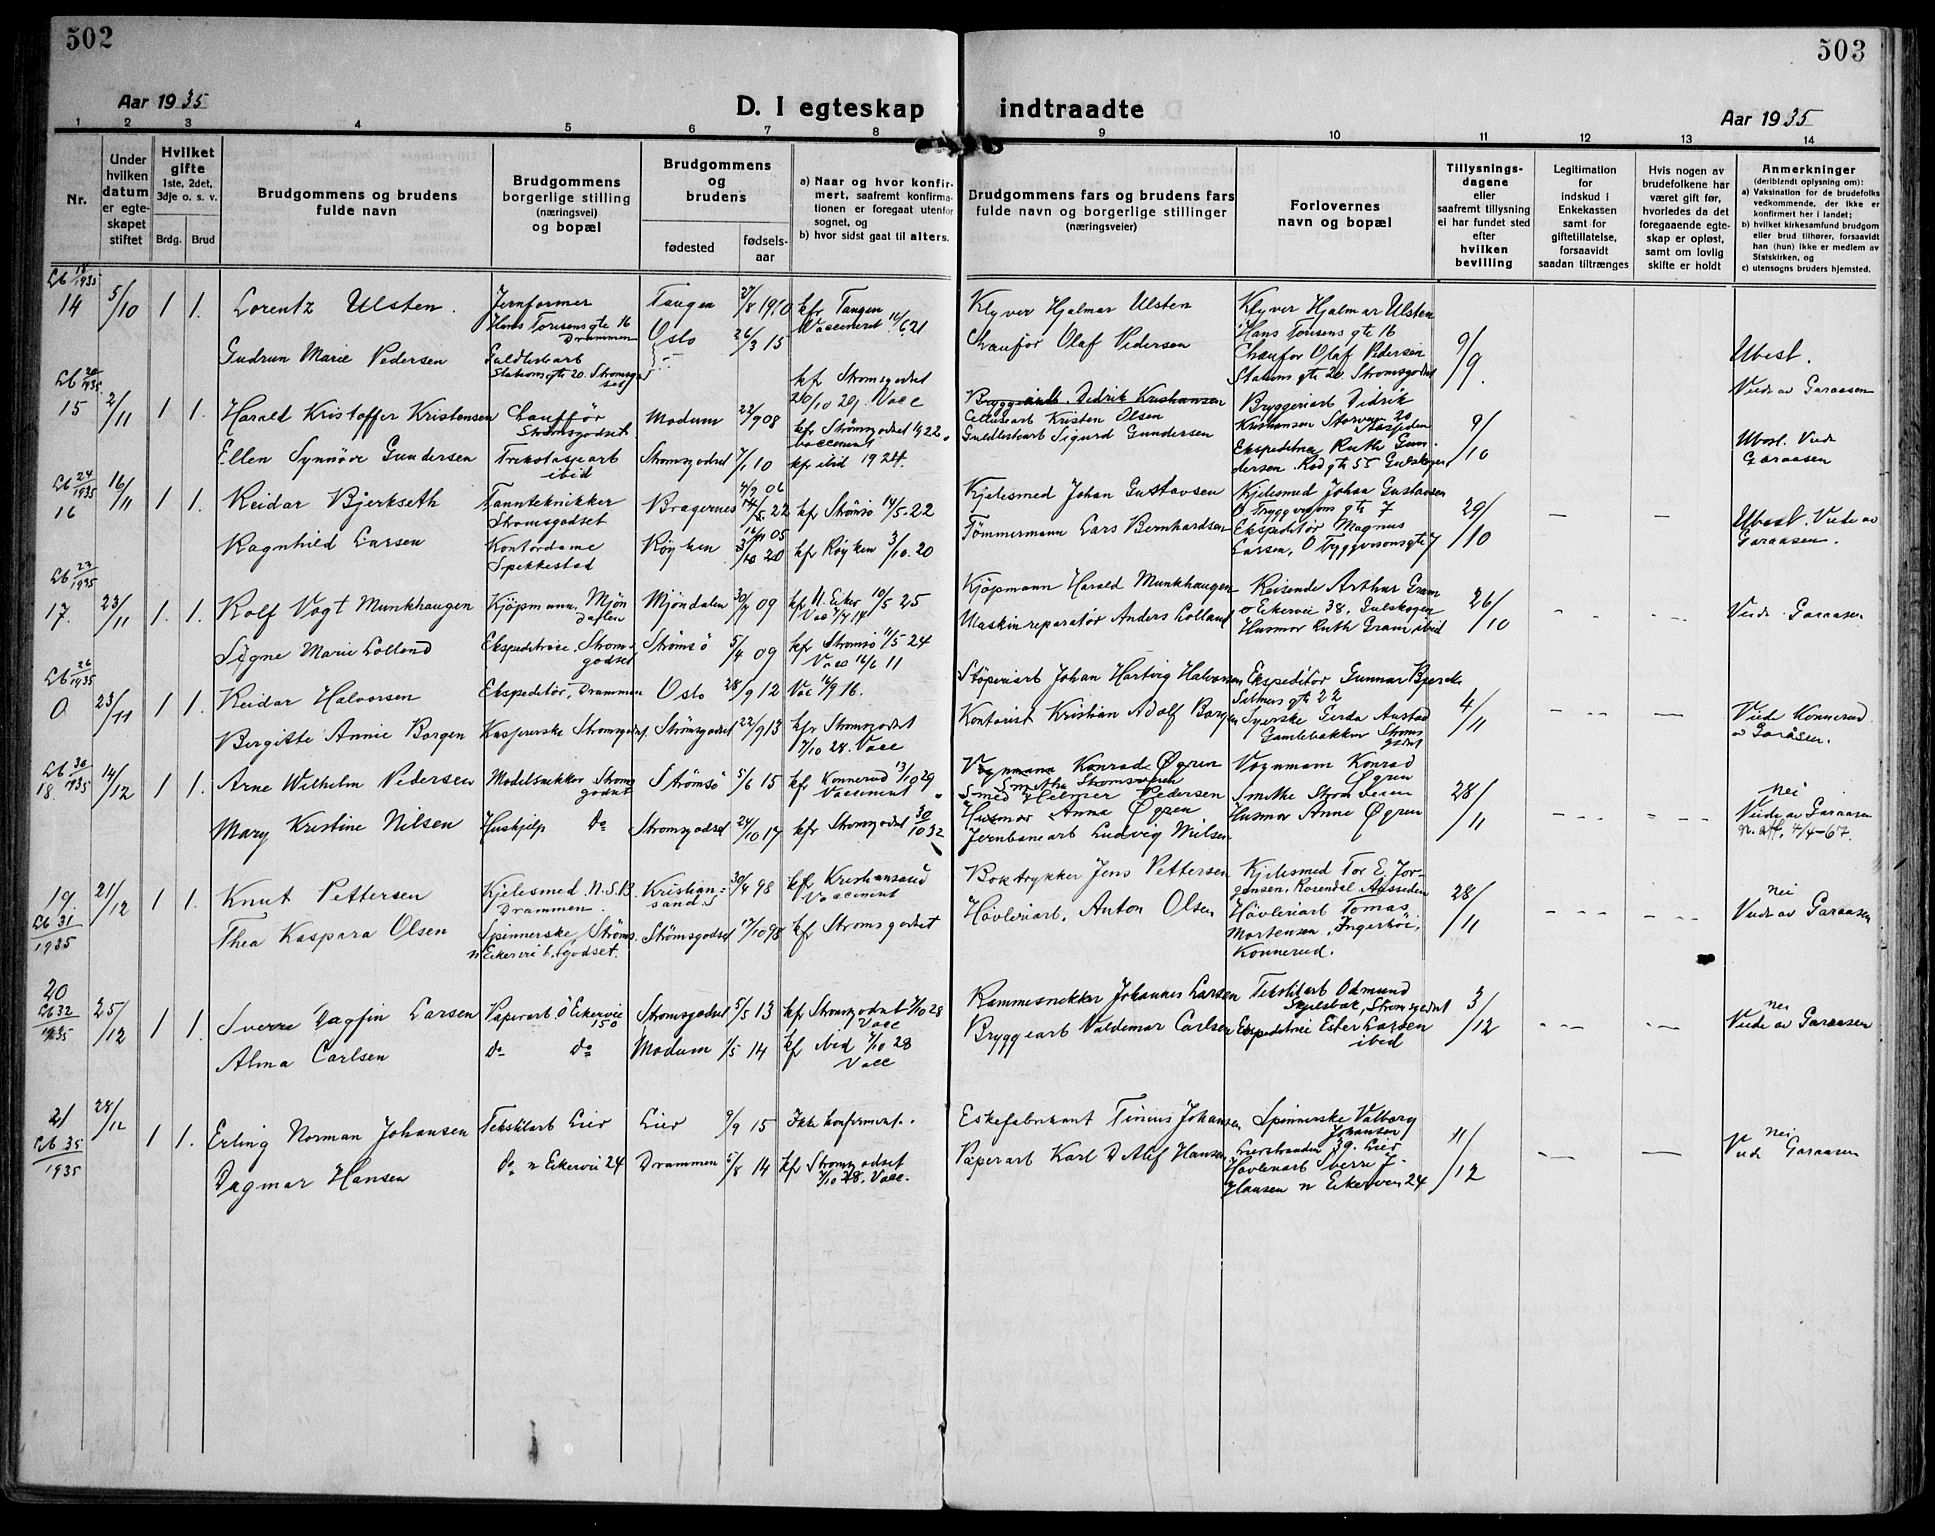 502
503
Aar 1935
D. I egteskap indtraadte
Aar 1935
1 2 3 4 5 6 7 8 9 10 11 12 13 14
Nr.
Under hvilken datum er egteskapet stiftet
Hvilket gifte 1ste, 2det, 3dje o. s. v.
Brdg. Brud
Brudgommens og brudens fulde navn
Brudgommens borgerlige stilling (næringsvei) og bopæl
Brudgommens og brudens
fødested fødselsaar
a) Naar og hvor konfirmert, saafremt konfirmationen er foregaat utenfor sognet, og
b) hvor sidst gaat til alters.
Brudgommens fars og brudens fars fulde navn og borgerlige stillinger (næringsveier)
Forlovernes navn og bopæl
Tillysningsdagene eller saafremt tillysning ei har fundet sted efter hvilken bevilling
Legitimation for indskud i Enkekassen samt for giftetillatelse, forsaavidt saadan tiltrænges
Hvis nogen av brudefolkene har været gift før, hvorledes da det foregaaende egteskap er opløst, samt om lovlig skifte er holdt
Anmerkninger (deriblandt oplysning om):
a) Vaksination for de brudefolks vedkommende, der ikke er konfirmert her i landet;
b) hvilket kirkesamfund brudgom eller brud tilhører, forsaavidt han (hun) ikke er medlem av Statskirken, og
c) utensogns bruders hjemsted.
Lb 18/1935
14 5/10 1 1. Lorentz Ulsten. Jernformer Tangen 27/8 1910 kfr Tangen Klyver Hjalmar Ulsten Klyver Hjalmar Ulsten
Hans Tordsens gte 16 Drammen Vaccineret Hans Tordsens gte 16
Gudrun Marie Pedersen Guldlistearb Oslo 26/3 15 Chaufør Olaf Pedersen Chaufør Olaf Pedersen 9/9 Ubest.
Stations gte 20. Strømsgodset kfr Strømsgodset 20/10 29. Vacc Stations gte 20. Strømsgodset Viede av Garaasen
Lb 20/1935
15 2/11 1 1. Harald Kristoffer Kristensen Chauffør Strømsgodset Modum 22/9 08 kfr Strømsgodset 1922. vaccinert Bryggeriarb. Didrik Kristiansen Bryggeriarb Didrik
Cellulosearb Kristen Olsen Kristiansen Storvei 20 9/10
Ellen Synnøve Gundersen Trikotasjearb ibid Strømsgodset 7/1 10 kfr ibid 1924. Guldlistearb Sigurd Gundersen Ekspeditrice Ruth Gundersen. Rød gte 55 Gulskogen Ubest. Viede Garaasen
Lb 24/1935
16 16/11 1 1. Reidar Bjerkseth Tannteknikker Strømsgodset Bragernes 4/9 06 kfr Strømsø 14/5. 22 Kjelesmed Johan Gustavsen Kjelesmed Johan Gustavsen
O Tryggvesons gte 7 29/10 Ubest. Viede av Garaasen.
Ragnhild Larsen Kontordame Spikkestad Røyken 16/11 05 kfr Røyken 3/10. 20 Tømmermann Lars Bernhardsen Ekspeditør Magnus Larsen, O Tryggvesonsgte 7
Lb 23/1935
17. 23/11 1. 1. Rolf Vogt Munkhaugen Kjøpmann, Mjøndalen Mjøndalen 30/7 09 kfr N. Eiker 10/5 25 Kjøpmann Harald Munkhaugen Reisende Arthur Gram
Ø Eikervei 38, Gulskogen 26/10 Viede Garaasen
Signe Marie Lolland Ekspeditrice, Strømsgodset Strømsø 5/4 09 kfr Strømsø 11/5 24 Vacc 16/6 11 Maskinreparatør Anders Lolland Husmor Ruth Gram ibid
Lb 26/1935
0 23/11 1 1. Reidar Halvorsen Ekspeditør, Drammen Oslo 28/9 12 Vac 14/9 16. Støperiarb Johan Hartvig Halvorsen Ekspeditør Gunnar Bjerck
4/11 Viede Konnerud av Garåsen.
Bergitte Annie Borgen Kassererske Strømsgodset. Strømsgodset 22/9 13 kfr Strømsgodset 7/10 28. Vacc Kontorist Kristian Adolf Borgen Syerske Gerda Austad Gamlebakken Strømsgodset
Lb 30/1935
18. 14/12 1 1. Arne Wilhelm Pedersen Modelsnekker Strømsgodset Strømsø 5/6 15 kfr Konnerud 13/10 29 Vaccinert Vognmann Konrad Øgren Vognmann Konrad Øgren
Smed Hilmer Pedersen Smithe Strømsveien 28/11 nei Viede av Garaasen
Mary Kristine Nilsen Hushjelp Do Strømsgodset 24/10 17 kfr Strømsgodset 30/10 32 Husmor Anna Øgren Husmor Anne Øgren
Jernbanearb Ludvig Nilsen 4/4-67.
19. 21/12 1 1. Knut Pettersen Kjelesmed N.S.B. Drammen. Kristiansand S 30/4 98 kfr Kristiansand Vaccinert Boktrykker Jens Pettersen Kjelesmed Tor E. Jorgensen, Rosendal Aassiden
Lb 31/1935
Thea Kaspara Olsen Spinnerske Strømsgodset. Strømsgodset 17/10 98 kfr Strømsgodset Høvleriarb. Anton Olsen Høvleriarb Tomas Mortensen, Ingerhøi, Konnerud. 28/11 nei Viede av Garaasen
20
Lb 32/1935 25/12 1 1. Sverre Dagfin Larsen Papirarb Ø Eikervei 150 Strømsgodset 5/5 13 kfr Strømsgodset 7/10 28 Vacc Rammesnekker Johannes Larsen Tekstilarb Odmund Skjelsbæk, Strømsgodset 3/12 nei Viede av Garaasen
Alma Carlsen Do Do Modum 1/5 14 kfr ibid 7/10 28 Vacc Bryggeriarb Valdemar Carlsen Ekspeditrice Ester Larsen ibid
21 28/12 1 1. Erling Norman Johansen Tekstilarb Lier Lier 9/9 15 Ikke konfirmert. Eskefabrikant Tinius Johansen Spinnerske Valborg Johansen
Lb 35/1935 Lierstranden 39. Lier 11/12 nei Viede Garaasen
Dagmar Hansen Do n Eikervei 24 Drammen 5/8 14 kfr Strømsgodset 7/10 28. Vacc. Papirarb Karl Detlif Hansen Høvleriarb Sverre J. Hansen n Eikervei 24